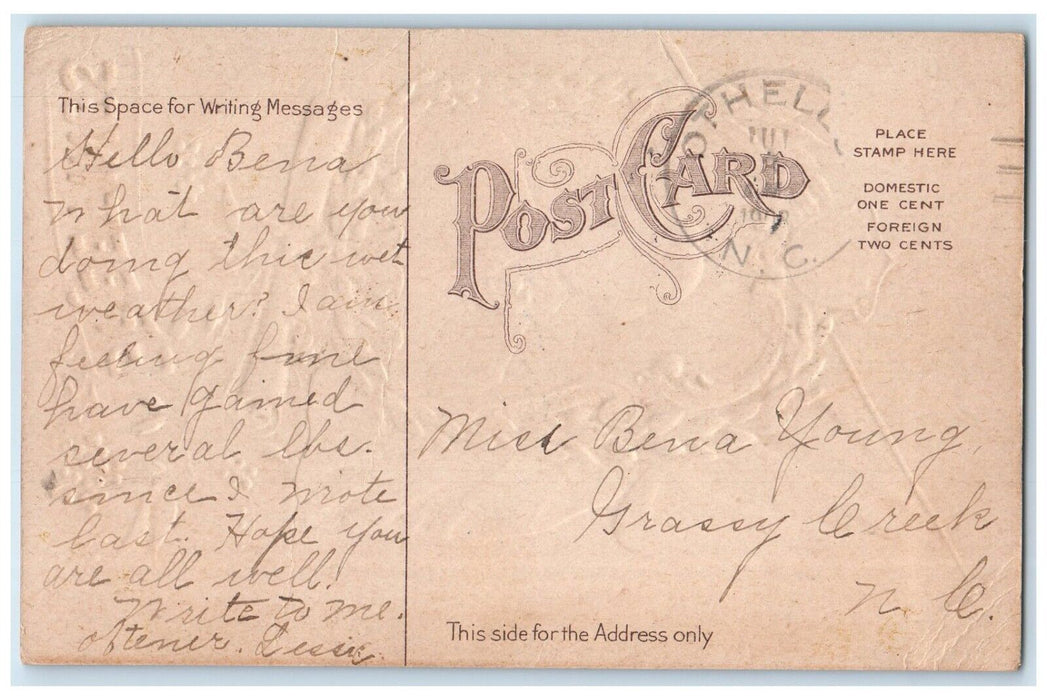 This Space for Writing Messages
Hello Bena
What are you
doing this wet
weather? I am
feeling fine
have gained
several lbs.
since I wrote
last. Hope you
are all well.
Write to me.
oftener. Lessie.
POST CARD
OTHELLO
JUL
N. C.
PLACE
STAMP HERE
DOMESTIC
ONE CENT
FOREIGN
TWO CENTS
Miss Bena Young,
Grassy Creek
N C.
This side for the Address only